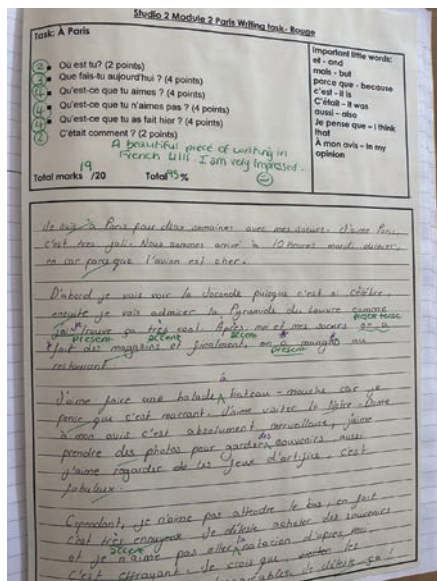 Studio 2 Module 2 Paris Writing task - Rouge
Task: À Paris
Où est tu? (2 points)
Que fais-tu aujourd'hui ? (4 points)
Qu'est-ce que tu aimes ? (4 points)
Qu'est-ce que tu n'aimes pas ? (4 points)
Qu'est-ce que tu as fait hier ? (4 points)
C'était comment ? (2 points)
A beautiful piece of writing in
French Lilli. I am very impressed.
Total marks 19 /20 Total 95 %
Important little words:
et - and
mais - but
parce que - because
c'est - it is
C'était – it was
aussi – also
Je pense que – I think
that
À mon avis – In my
opinion
Je suis à Paris pour deux semaines avec mes soeurs. J'aime Paris,
c'est très joli. Nous sommes arrivé à 10 heures mardi dernier,
en car parce que l'avion est cher.
D'abord je vais voir la Joconde puisque c'est si célèbre,
ensuite je vais admirer la Pyramide du Louvre comme
trouve ça très cool. Après, moi et mes soeurs on a
present accent accent
fait des magazins et finalment, on a mangé au
present
restaurant
à
J'aime faire une balade bateau-mouche car je
pense que c'est marrant. J'aime visiter le Notre-Dame
à mon avis c'est absolument merveilleux, j'aime
des
prendre des photos pour garder souvenirs aussi
j'aime regarder de les feux d'artifice, c'est
fabuleux.
Cependant, je n'aime pas attendre le bus, en fait
c'est très ennuyeux. Je déteste acheter des souvenirs
accent la
et je n'aime pas aller natation d'après moi
c'est effrayant. Je crois que les
déteste ça!